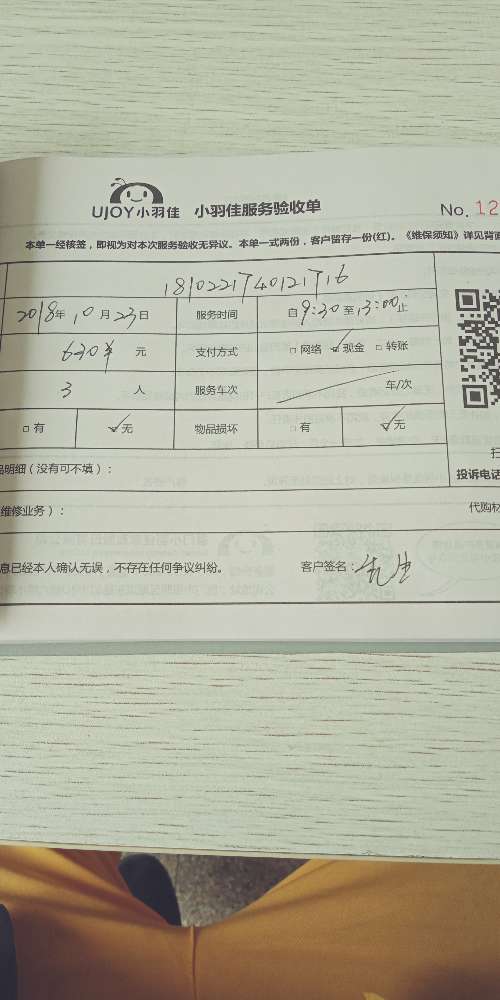 UJOY小羽佳 小羽佳服务验收单 No. 12
本单一经核签，即视为对本次服务验收无异议。本单一式两份，客户留存一份(红)。《维保须知》详见背面
2018年 10月23日 服务时间 自9:30至13:00止
630¥ 元 支付方式 □ 网络 ☑ 现金 □ 转账
3 人 服务车次 车/次
□ 有 ☑ 无 物品损坏 □ 有 ☑ 无
品明细（没有可不填）：
投诉电话
维修业务）： 代购材
息已经本人确认无误，不存在任何争议纠纷。 客户签名：先生